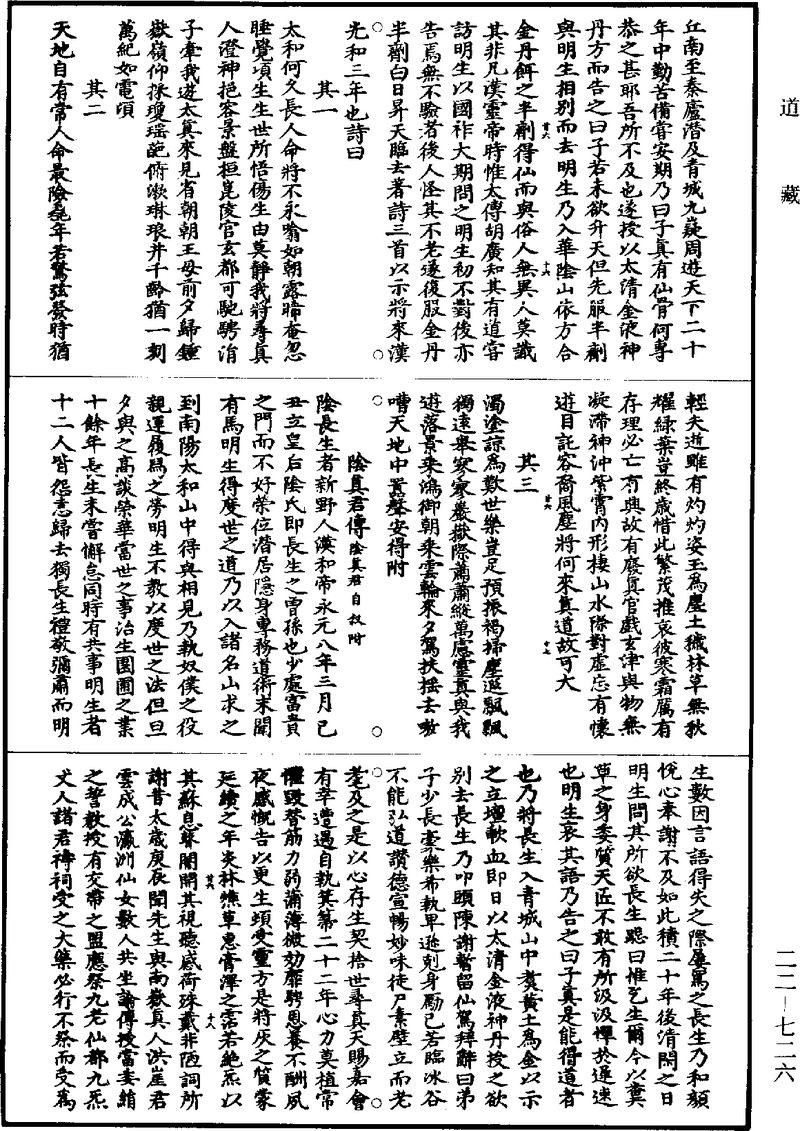 道藏
丘南至秦廬潛及青城九嶷周遊天下二十
年中勤苦備嘗安期乃曰子真有仙骨何專
恭之甚耶吾所不及也遂授以太清金液神
丹方而告之曰子若未欲升天但先服半劑
與明生相別而去明生乃入華陰山依方合
金丹餌之半劑得仙而與俗人無異人莫識
其非凡漢靈帝時惟太傅胡廣知其有道嘗
訪明生以國祚大期問之明生初不對後亦
告焉無不驗者後人怪其不老遂復服金丹
半劑白日昇天臨去著詩三首以示將來漢
光和三年也詩曰
其一
太和何久長人命將不永噏如朝露晞奄忽
睡覺頃生生世所悟傷生由莫靜我將尋真
人澄神挹容景盤桓崑陵宮玄都可馳騁涓
子牽我遊太真來見省朝朝王母前夕歸鍾
嶽嶺仰採瓊瑶葩俯漱琳琅井千齡猶一刻
萬紀如電頃
其二
天地自有常人命最險巇年若驚弦發時猶
輕矢逝雖有灼灼姿玉為塵土穢林草無秋
耀綠葉豈終歲惜此繁茂摧哀彼寒霜厲有
存理必亡有興故有廢真官戲玄津與物無
凝滯神沖紫霄內形棲山水際對虛忘有懷
遊目託容裔風塵將何來真道故可大
其三
濁塗諒為歎世樂豈足預振褐掃塵遊飄飄
獨遠舉寥寥巖嶽際蕭蕭縱萬慮靈真與我
遊落景乘鴻御朝乘雲輪來夕駕扶摇去嗷
嘈天地中囂聲安得附
陰真君傳陰真君自叙附
陰長生者新野人漢和帝永元八年三月己
丑立皇后陰氏即長生之曾孫也少處富貴
之門而不好榮位潛居隱身專務道術末聞
有馬明生得度世之道乃以入諸名山求之
到南陽太和山中得與相見乃執奴僕之役
親運履舄之勞明生不教以度世之法但旦
夕與之高談榮華當世之事治生園圃之業
十餘年長生未嘗懈怠同時有共事明生者
十二人皆怨恚歸去獨長生禮敬彌肅而明
生數因言語得失之際屢罵之長生乃和顏
悅心奉謝不及如此積二十年後清閒之日
明生問其所欲長生跽曰惟乞生爾今以糞
草之身委質天匠不敢有所汲汲憚於遲速
也明生哀其語乃告之曰子真是能得道者
也乃將長生入青城山中煑黃土為金以示
之立壇歃血即日以太清金液神丹授之欲
別去長生乃叩頭陳謝暫留仙駕拜辭曰弟
子少長豪樂希執卑遜剋身勵己若臨冰谷
不能弘道讚德宣暢妙味徒尸素壁立而老
耄及之是以心存生契捨世尋真天賜嘉會
有幸遭遇自執箕箒二十二年心力莫植常
懼毀替筋力弱蒲薄微効靡騁恩養不酬夙
夜感慨告以更生頒受靈方是將灰之質蒙
延續之年炎林燋草惠膏澤之霑若絕炁以
其蘇息瞽闇開其視聽感荷殊戴非陋詞所
謝昔太歲庚辰聞先生與南嶽真人洪崖君
雲成公瀛洲仙女數人共坐論傳授當委絹
之誓教授有交帶之盟應祭九老仙都九炁
丈人諸君禱祠受之大藥必行不祭而受為
二二—七二六